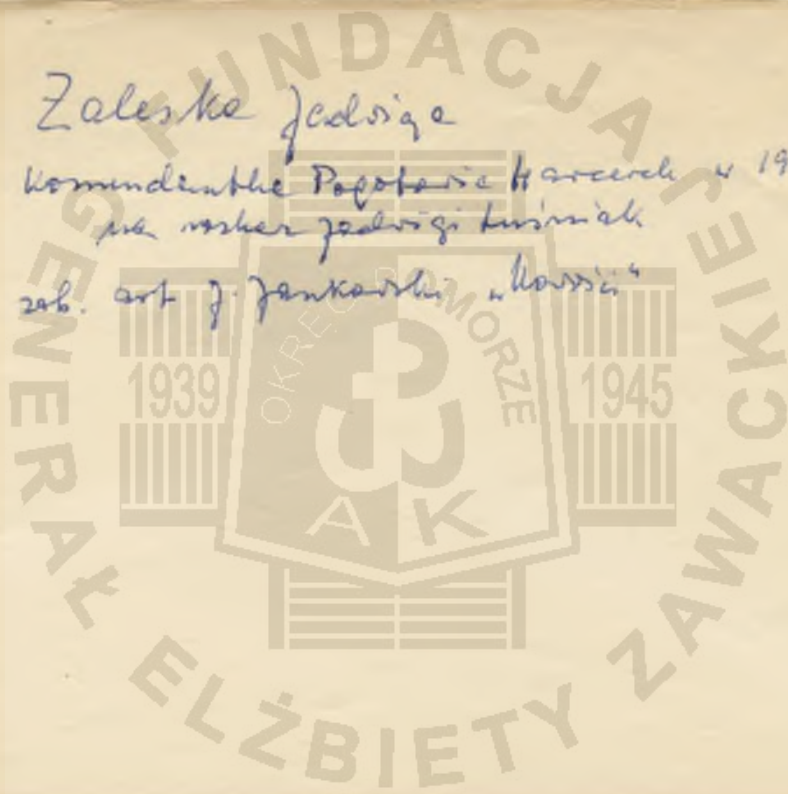 Zaleska Jadwiga
Komendantka Pogotowia Harcerek w 19
na rozkaz Jadwigi Luśniak
zob. art J. Jankowski „
FUNDACJA
GENERAŁ ELŻBIETY ZAWACKIEJ
OKRĘG POMORZE
1939
1945
AK